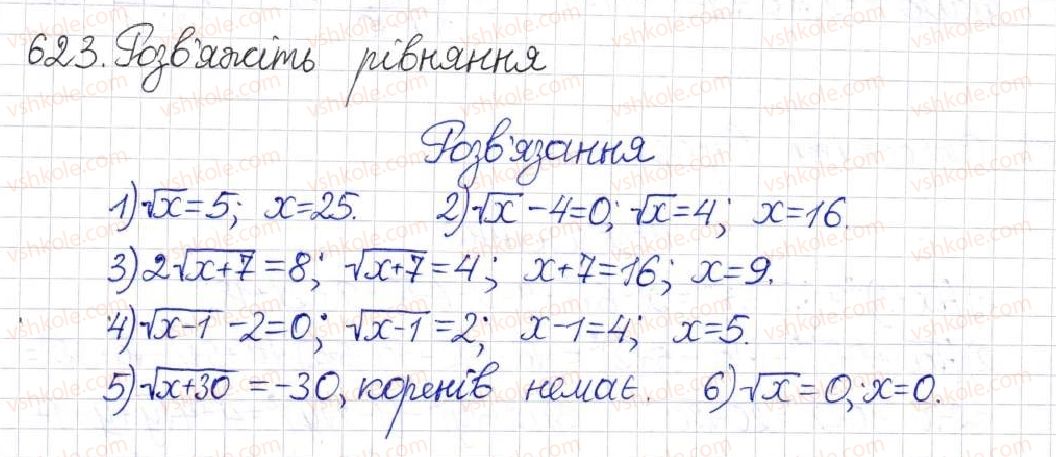 623. Розв'яжіть рівняння
Розв'язання
1) √x = 5; x = 25. 2) √x - 4 = 0; √x = 4; x = 16.
3) 2√(x+7) = 8; √(x+7) = 4; x + 7 = 16; x = 9.
4) √(x-1) - 2 = 0; √(x-1) = 2; x - 1 = 4; x = 5.
5) √(x+30) = -30, коренів немає. 6) √x = 0; x = 0.